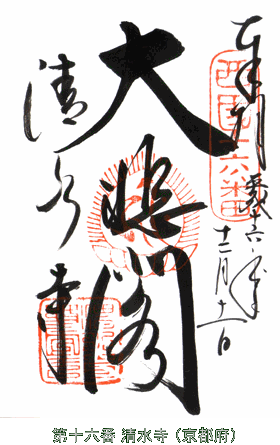 奉拝
西国十六番
十二月十一日
大悲閣
清水寺
第十六番 清水寺 (京都府)